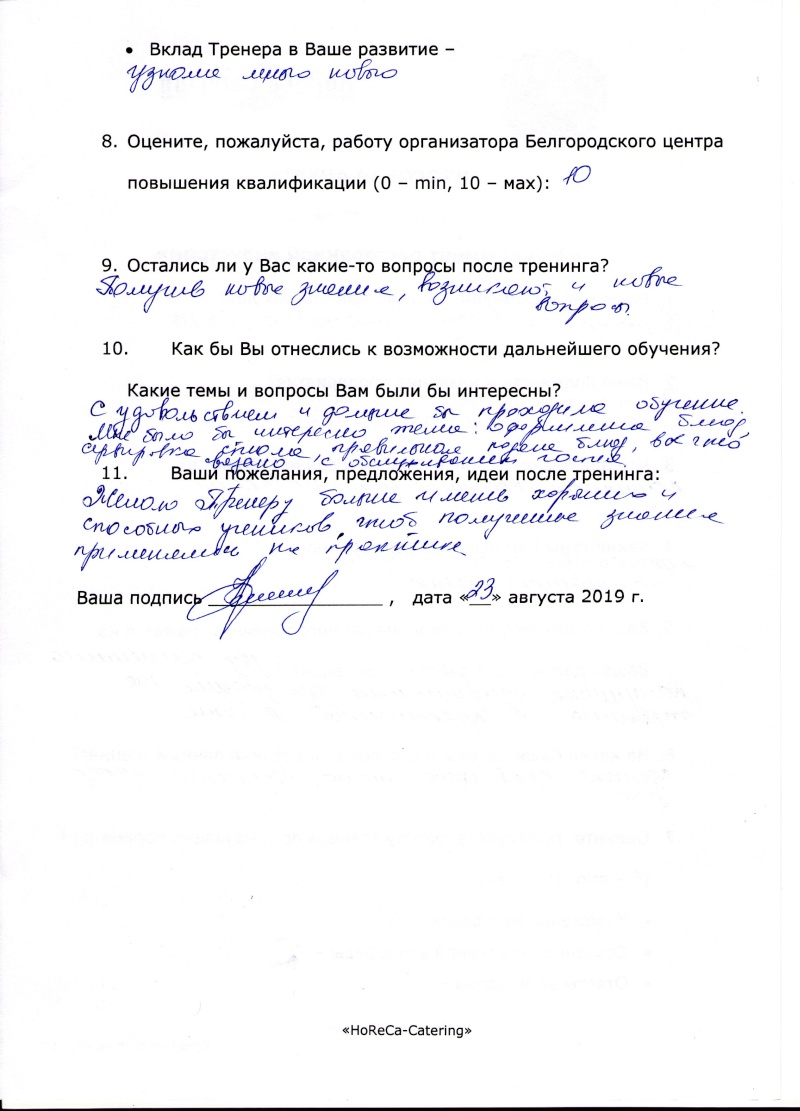 • Вклад Тренера в Ваше развитие –
узнала много нового
8. Оцените, пожалуйста, работу организатора Белгородского центра
повышения квалификации (0 – min, 10 – мах): 10
9. Остались ли у Вас какие-то вопросы после тренинга?
Получив новые знания, возникают и новые
вопросы.
10. Как бы Вы отнеслись к возможности дальнейшего обучения?
Какие темы и вопросы Вам были бы интересны?
С удовольствием и дальше бы проходила обучение.
Мне было бы интересно тема: оформления блюд,
сервировка стола, правильная подача блюд, все что
связано с обслуживанием гостя
11. Ваши пожелания, предложения, идеи после тренинга:
Желаю Тренеру больше иметь хороших и
способных учеников, чтоб полученные знания
применялись на практике
Ваша подпись ____________________ , дата «23» августа 2019 г.
«HoReCa-Catering»